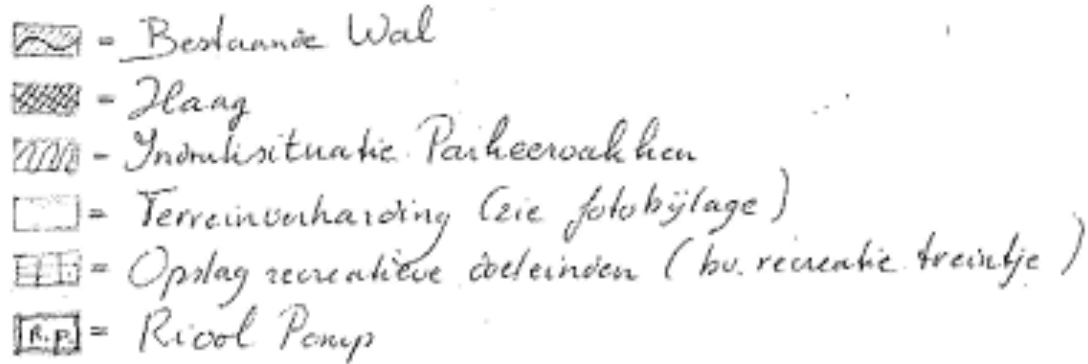 = Bestaande Wal
= Haag
= Indruksituatie Parkeervakken
= Terreinverharding (zie fotobijlage)
= Opslag recreatieve doeleinden (bv. recreatie treintje)
R.P. = Riool Pomp